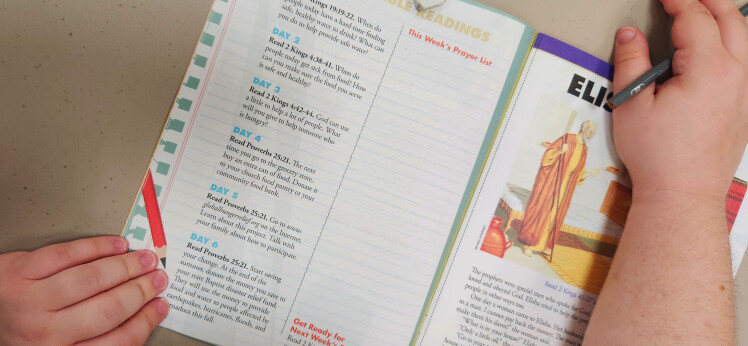 Kings 19:19-22. When do
people today have a hard time finding
safe, healthy water to drink? What can
you do to help provide safe water?
DAY 2
Read 2 Kings 4:38-41. When do
people today get sick from food? How
can you make sure the food you serve
is safe and healthy?
DAY 3
Read 2 Kings 4:42-44. God can use
a little to help a lot of people. What
will you give to help someone who
is hungry?
DAY 4
Read Proverbs 25:21. The next
time you go to the grocery store,
buy an extra can of food. Donate it
to your church food pantry or your
community food bank.
DAY 5
Read Proverbs 25:21. Go to www.
globalhungerrelief.org on the Internet.
Learn about this project. Talk with
your family about how to participate.
DAY 6
Read Proverbs 25:21. Start saving
your change. At the end of the
summer, donate the money you save to
your state Baptist disaster relief fund.
They will use the money to provide
food and water to people affected by
earthquakes, hurricanes, floods, and
this fall.
READINGS
This Week's Prayer List
Get Ready for
Next Week's
Read 2 Kings
ELIS
Read 2 Kings
The prophets were special men who spoke for
loved and obeyed God. Elisha tried to help the
people in other ways too.
One day a woman came to Elisha.
to a man. I cannot pay back the money
make them his slaves!" the woman said.
"What is in your house?"
"Only a little oil," the
"Go to your